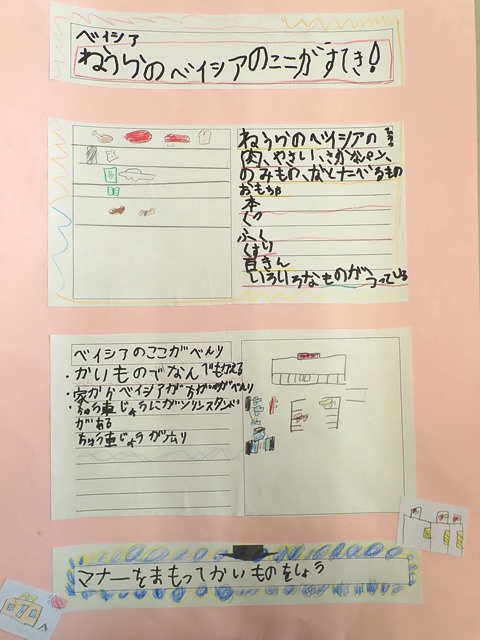 ベイシア
ねうらのベイシアのここがすてき!
ねうらのベイシアの
肉、やさい、さかなパン、
のみもの、などたべるもの
おもちゃ
本
くつ
ふく
くすり
百きん
いろいろなものがうっている
ベイシアのここがべんり
・かいものでなんでもかえる
・家からベイシアがちかいのがべんり
・ちゅう車じょうにガソリンスタンドが
がある
ちゅう車じょうが広い
マナーをまもってかいものをしよう